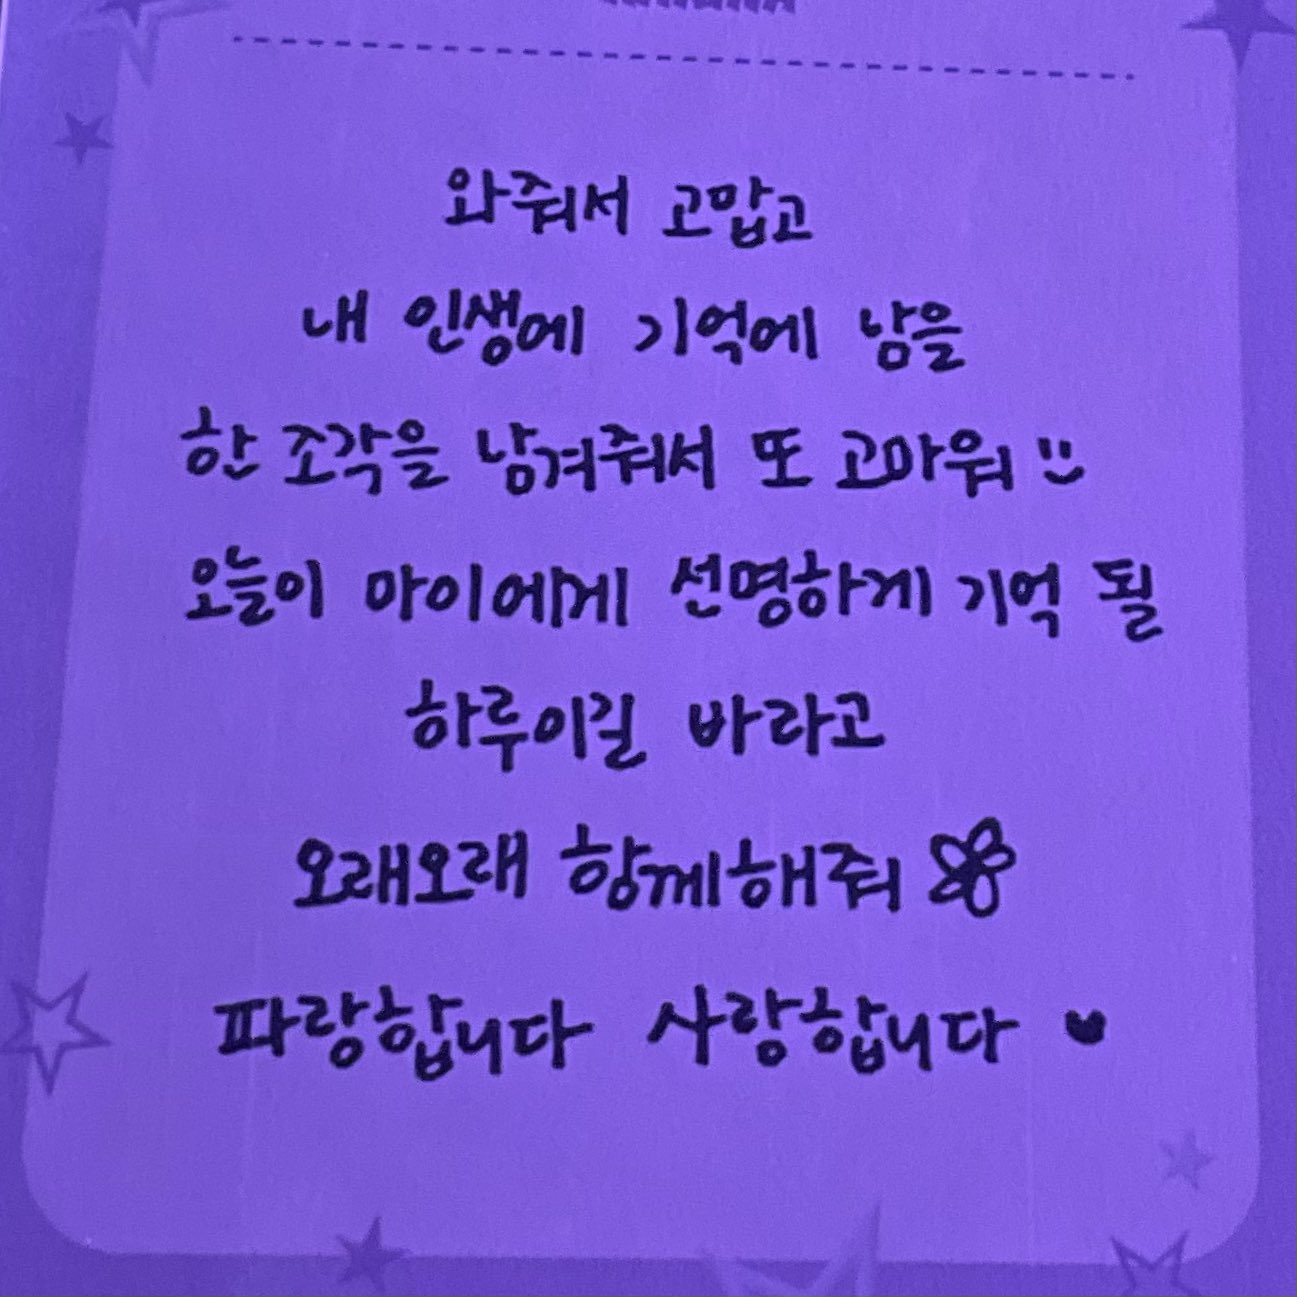 와줘서 고맙고
내 인생에 기억에 남을
한 조각을 남겨줘서 또 고마워
오늘이 마이에게 선명하게 기억 될
하루이길 바라고
오래오래 함께해줘
파랑합니다 사랑합니다